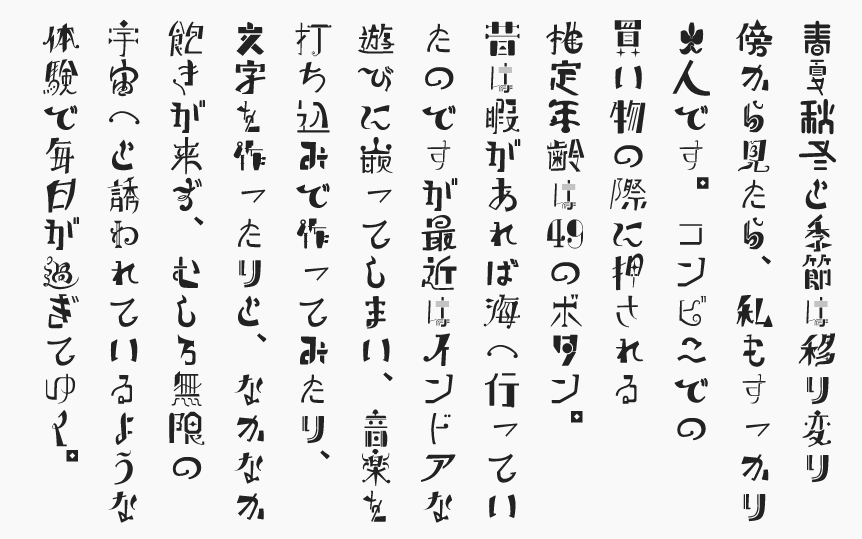 春夏秋冬と季節は移り変り
傍から見たら、私もすっかり
大人です。コンビニでの
買い物の際に押される
推定年齢は49のボタン。
昔は暇があれば海へ行ってい
たのですが最近はインドアな
遊びに嵌ってしまい、音楽を
打ち込みで作ってみたり、
文字を作ったりと、なかなか
飽きが来ず、むしろ無限の
宇宙へと誘われているような
体験で毎日が過ぎてゆく。